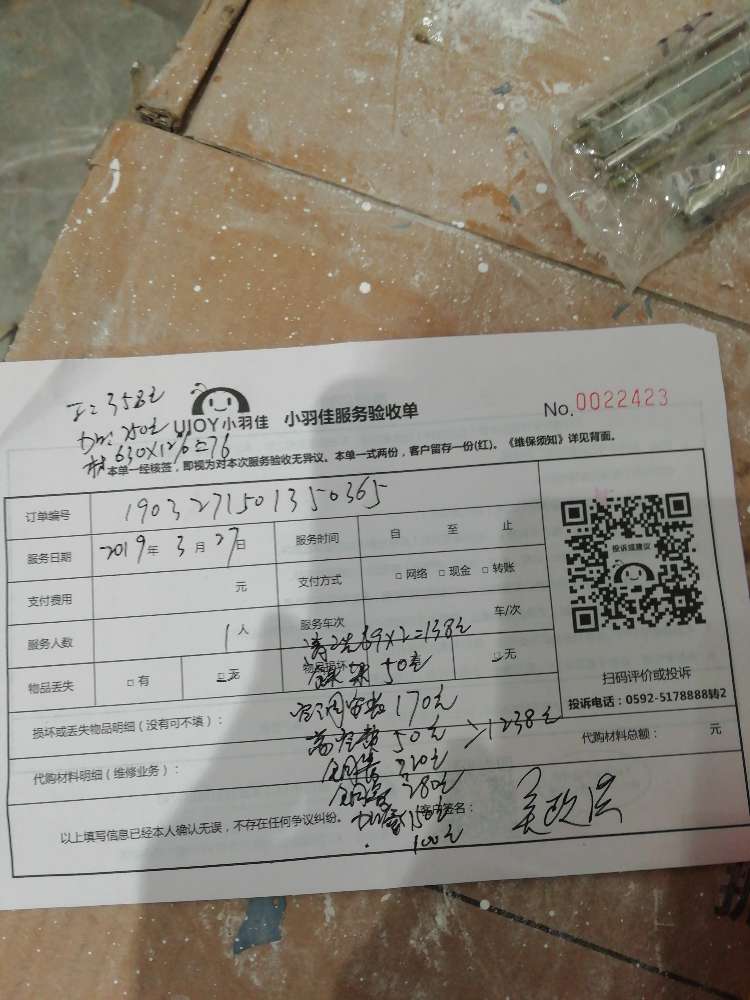 工: 358元
250元
材630×12%=76
UJOY小羽佳 小羽佳服务验收单 No.0022423
本单一经核签，即视为对本次服务验收无异议。本单一式两份，客户留存一份(红)。《维保须知》详见背面。
订单编号 1903271501350365
服务日期 2019年3月27日 服务时间 自 至 止
投诉或建议
支付费用 元 支付方式 □网络 □现金 □转账
服务人数 1人 服务车次 车/次
清洗69×2=138元
物品丢失 □有 □无 物品损坏 □有 □无
50元
扫码评价或投诉
投诉电话：0592-5178888转2
空调安装 170元
损坏或丢失物品明细（没有可不填）：
高空费 50元 >1238元
代购材料总额： 元
代购材料明细（维修业务）：
280元
以上填写信息已经本人确认无误，不存在任何争议纠纷。 客户签名：
150元
100元